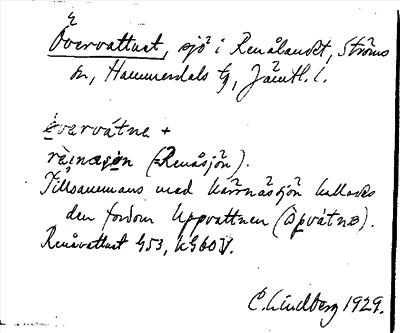 Övervattnet, sjö i Renålandet, Ströms
sn, Hammerdals tg, Jämtl. l.
övərvátnə +
(Renåsjön).
Tillsammans med Kärrnäsjön kallades
den fordom Uppvattnen (òpvátnə).
Renåvattnet G53, KG60V.
C. Lindberg 1929.